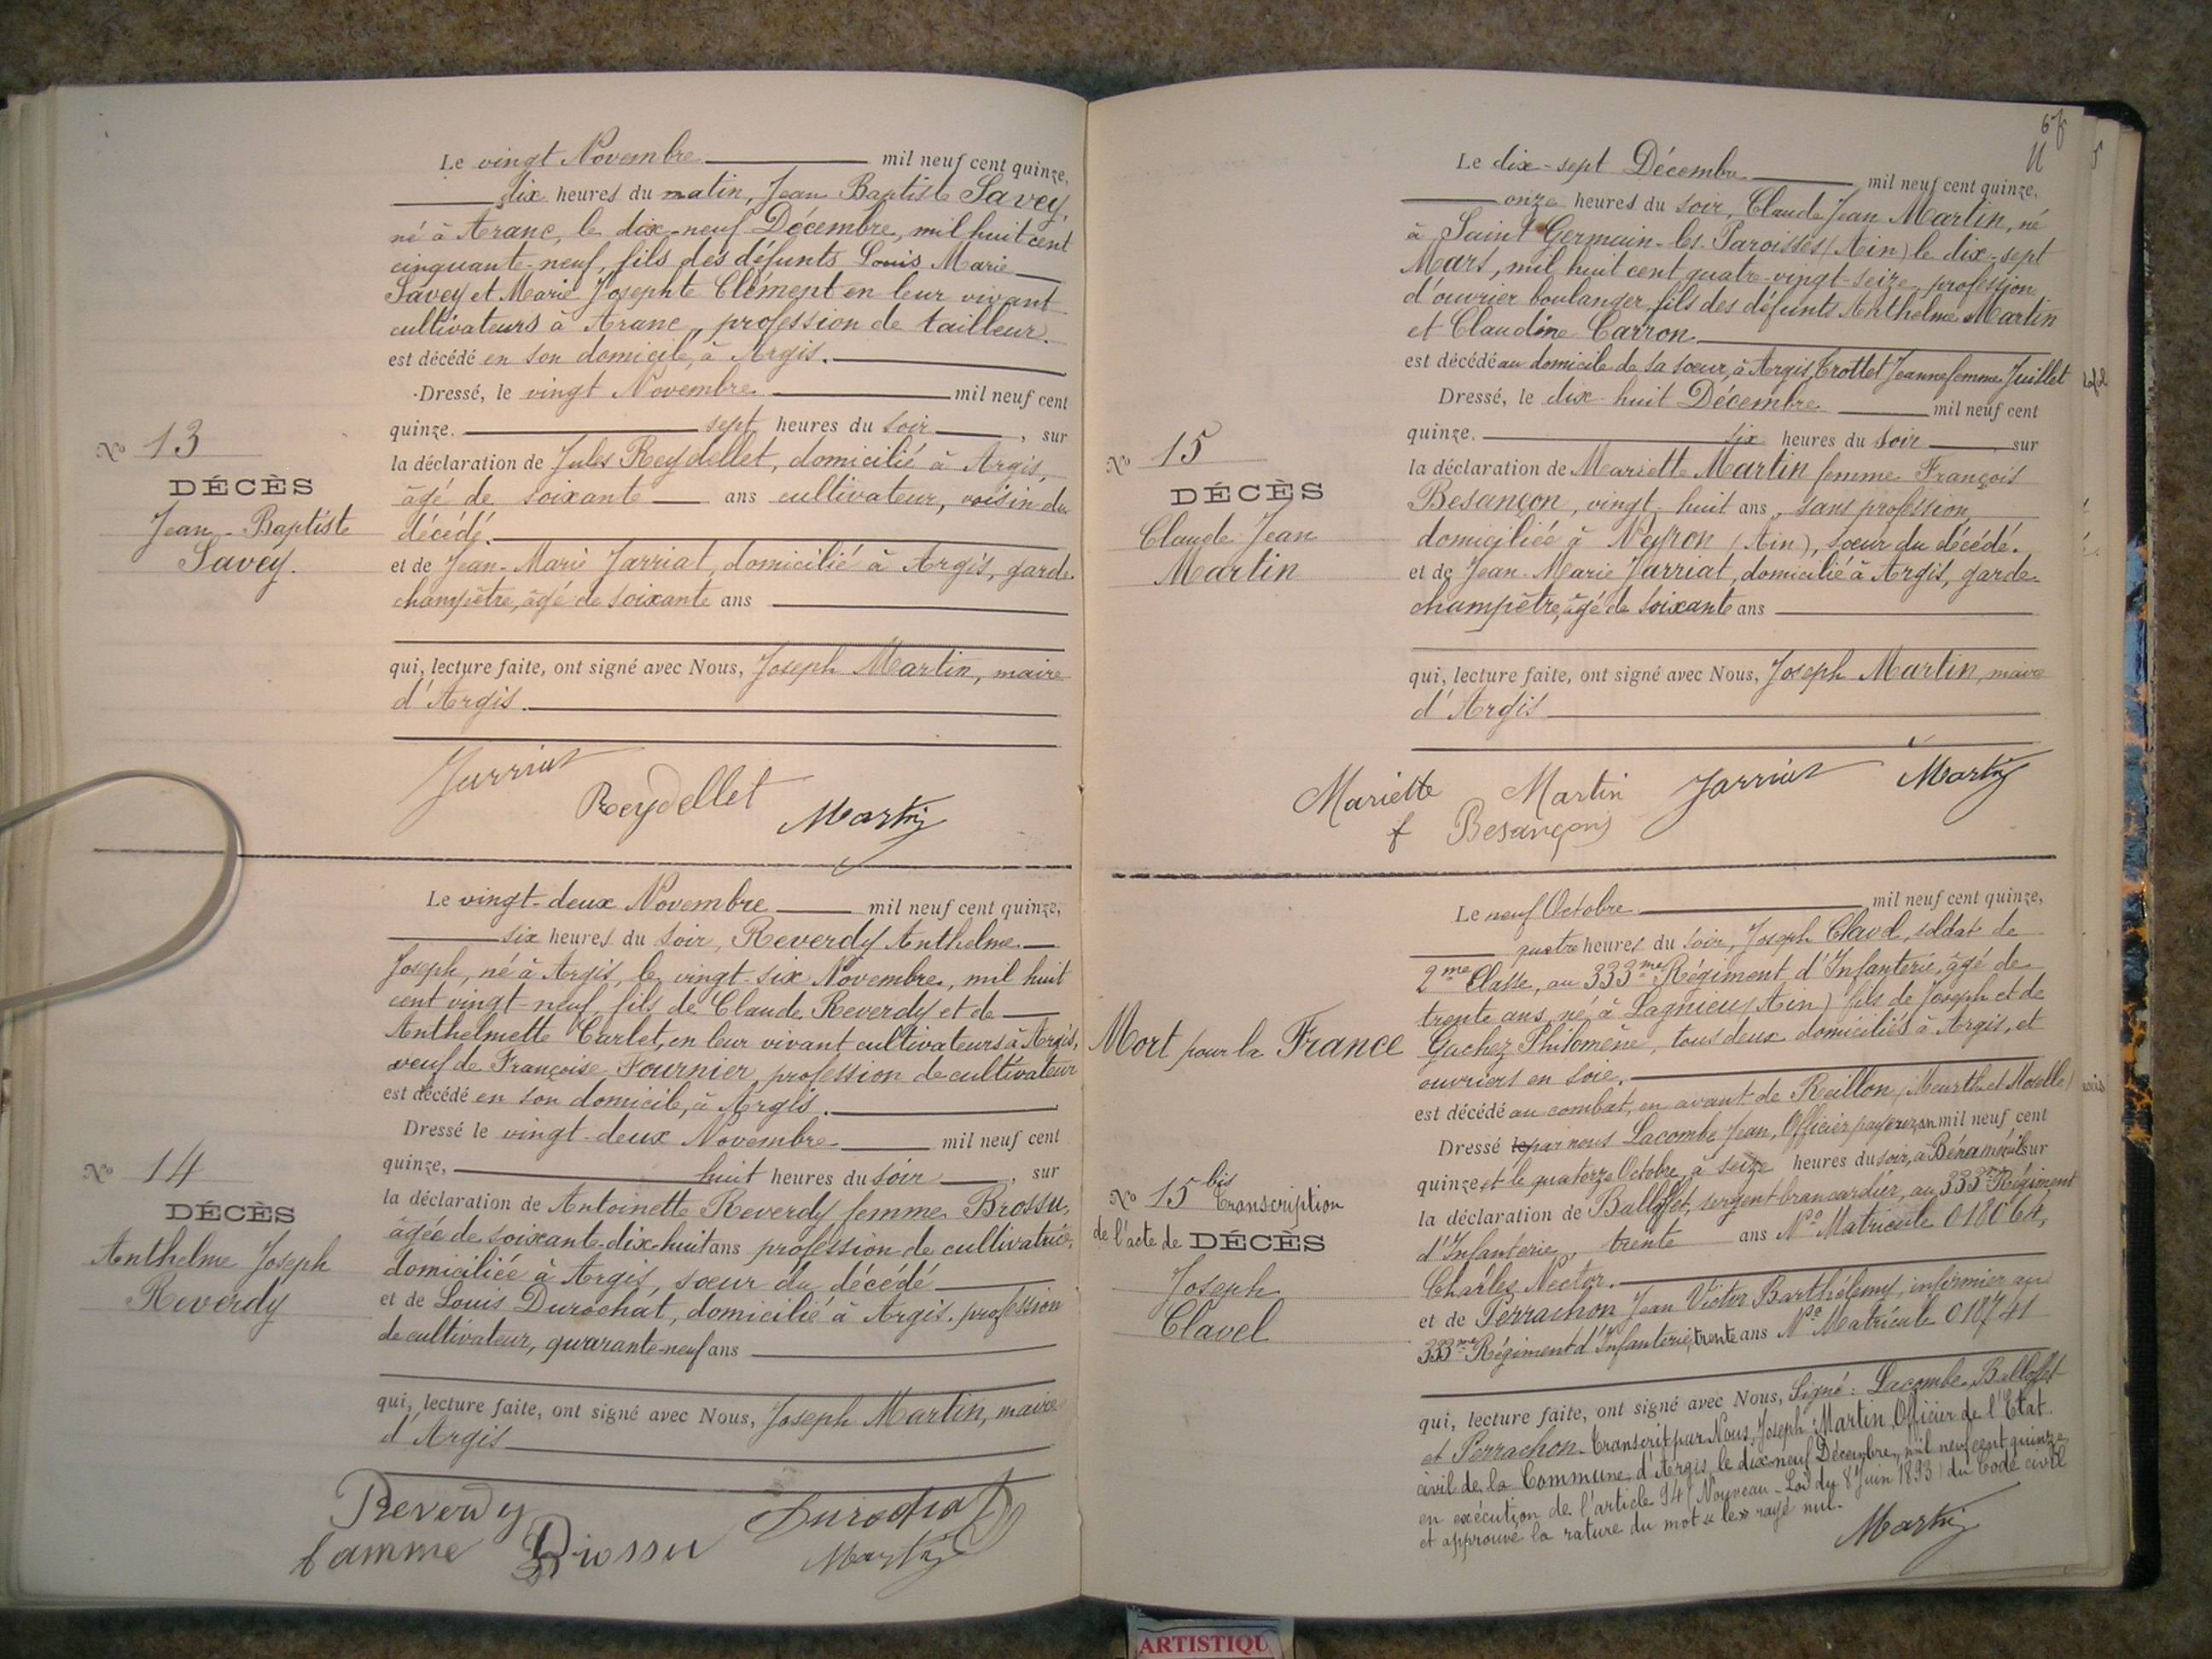 Le vingt Novembre mil neuf cent quinze,
dix heures du matin, Jean Baptiste Savey,
né à Aranc, le dix-neuf Décembre, mil huit cent
cinquante-neuf, fils des défunts Louis Marie
Savey et Marie Josephte Clément en leur vivant
cultivateurs à Aranc, profession de tailleur.
est décédé en son domicile, à Argis.
Dressé, le vingt Novembre mil neuf cent
quinze. sept heures du soir, sur
la déclaration de Jules Reydellet, domicilié à Argis,
âgé de soixante ans cultivateur, voisin du
décédé.
et de Jean-Marie Jarriat, domicilié à Argis, garde
champêtre, âgé de soixante ans
qui, lecture faite, ont signé avec Nous, Joseph Martin, maire
d'Argis.
Jarriat
Reydellet Martin
No 13
DÉCÈS
Jean-Baptiste
Savey.
Le vingt-deux Novembre mil neuf cent quinze,
six heures du soir, Reverdy Anthelme
Joseph, né à Argis, le vingt-six Novembre, mil huit
cent vingt-neuf, fils de Claude Reverdy et de
Anthelmette Carlet, en leur vivant cultivateurs à Argis,
veuf de Françoise Fournier, profession de cultivateur
est décédé en son domicile, à Argis.
Dressé le vingt-deux Novembre mil neuf cent
quinze, huit heures du soir, sur
la déclaration de Antoinette Reverdy femme Brossu,
âgée de soixante-dix-huit ans profession de cultivatrice,
domiciliée à Argis, sœur du décédé
et de Louis Durochat, domicilié à Argis, profession
de cultivateur, quarante-neuf ans
qui, lecture faite, ont signé avec Nous, Joseph Martin, maire
d'Argis
Reverdy Durochat
famme Brossu Martin
No 14
DÉCÈS
Anthelme Joseph
Reverdy
Le dix-sept Décembre mil neuf cent quinze,
onze heures du soir, Claude Jean Martin, né
à Saint Germain-les-Paroisses (Ain) le dix-sept
Mars, mil huit cent quatre-vingt-seize, profession
d'ouvrier boulanger, fils des défunts Anthelme Martin
et Claudine Carron
est décédé au domicile de sa sœur, à Argis, Trottet Jeanne femme Juillet
Dressé, le dix-huit Décembre mil neuf cent
quinze, six heures du soir, sur
la déclaration de Mariette Martin femme François
Besançon, vingt-huit ans, sans profession,
domiciliée à Neyron (Ain), sœur du décédé.
et de Jean-Marie Jarriat, domicilié à Argis, garde
champêtre, âgé de soixante ans
qui, lecture faite, ont signé avec Nous, Joseph Martin, maire
d'Argis
Mariette Martin Jarriat Martin
f Besançon
No 15
DÉCÈS
Claude Jean
Martin
Le neuf Octobre mil neuf cent quinze,
quatre heures du soir, Joseph Clavel, soldat de
2me Classe, au 333me Régiment d'Infanterie, âgé de
trente ans, né à Lagnieu (Ain) fils de Joseph et de
Gachez Philomène, tous deux domiciliés à Argis, et
ouvriers en soie.
est décédé au combat, en avant de Reillon (Meurthe et Moselle)
Dressé le par nous Lacombe Jean, Officier payeur, en mil neuf cent
quinze, et le quatorze Octobre, à seize heures du soir, à Bénaménil sur
la déclaration de Balloffet, sergent brancardier, au 333me Régiment
d'Infanterie, trente ans No Matricule 018064,
Charles Nector.
et de Perrachon Jean Victor Barthélemy, infirmier au
333me Régiment d'Infanterie, trente ans No Matricule 018741
qui, lecture faite, ont signé avec Nous, Signé: Lacombe, Balloffet
et Perrachon. Transcrit par Nous, Joseph Martin, Officier de l'Etat
civil de la Commune d'Argis, le dix-neuf Décembre, mil neuf cent quinze
en exécution de l'article 94 (Nouveau - Loi du 8 Juin 1893) du Code civil
et approuvé la rature du mot « le » rayé nul.
Martin
Mort pour la France
No 15 bis Transcription
de l'acte de DÉCÈS
Joseph
Clavel
ARTISTIQU